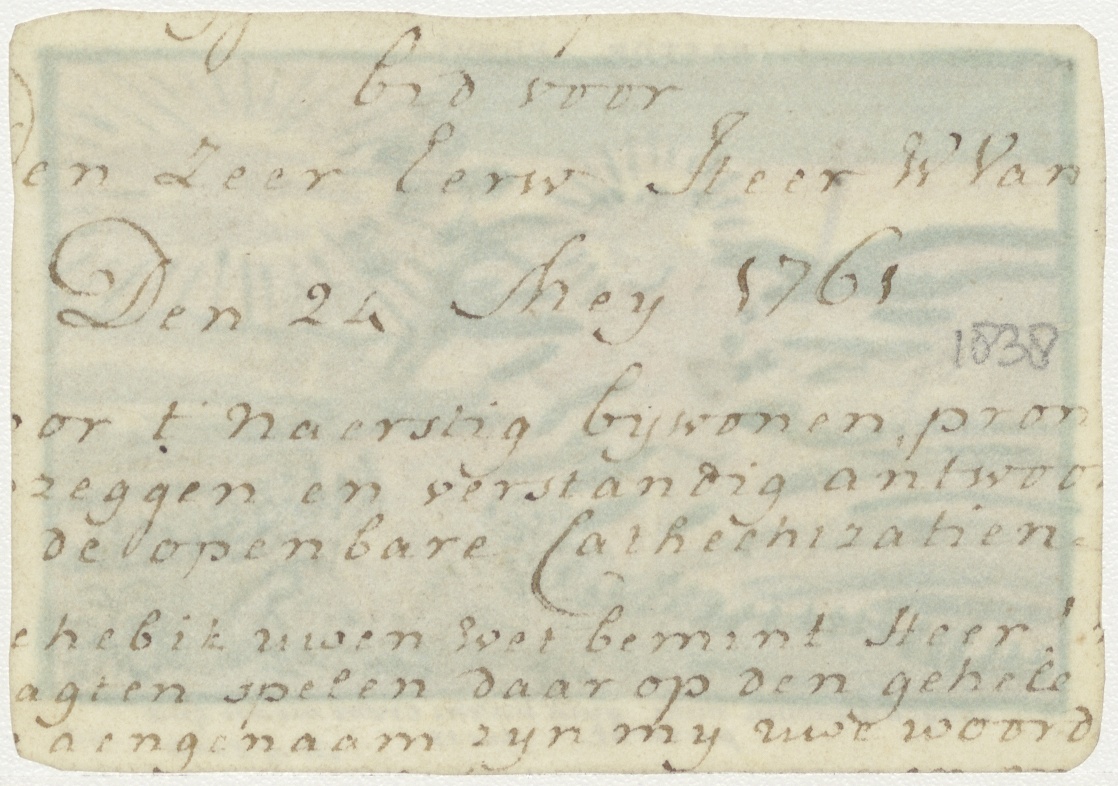 bid voor
den Zeer Eerw Heer W Van
Den 24 Mey 1761
1838
oor t' Naerstig bijwonen, pron
zeggen en verstandig antwoo
de openbare Cathechizatien
hebik uwen wet bemint Heer
agten spelen daar op den gehele
aengenaam zyn my uwe woord